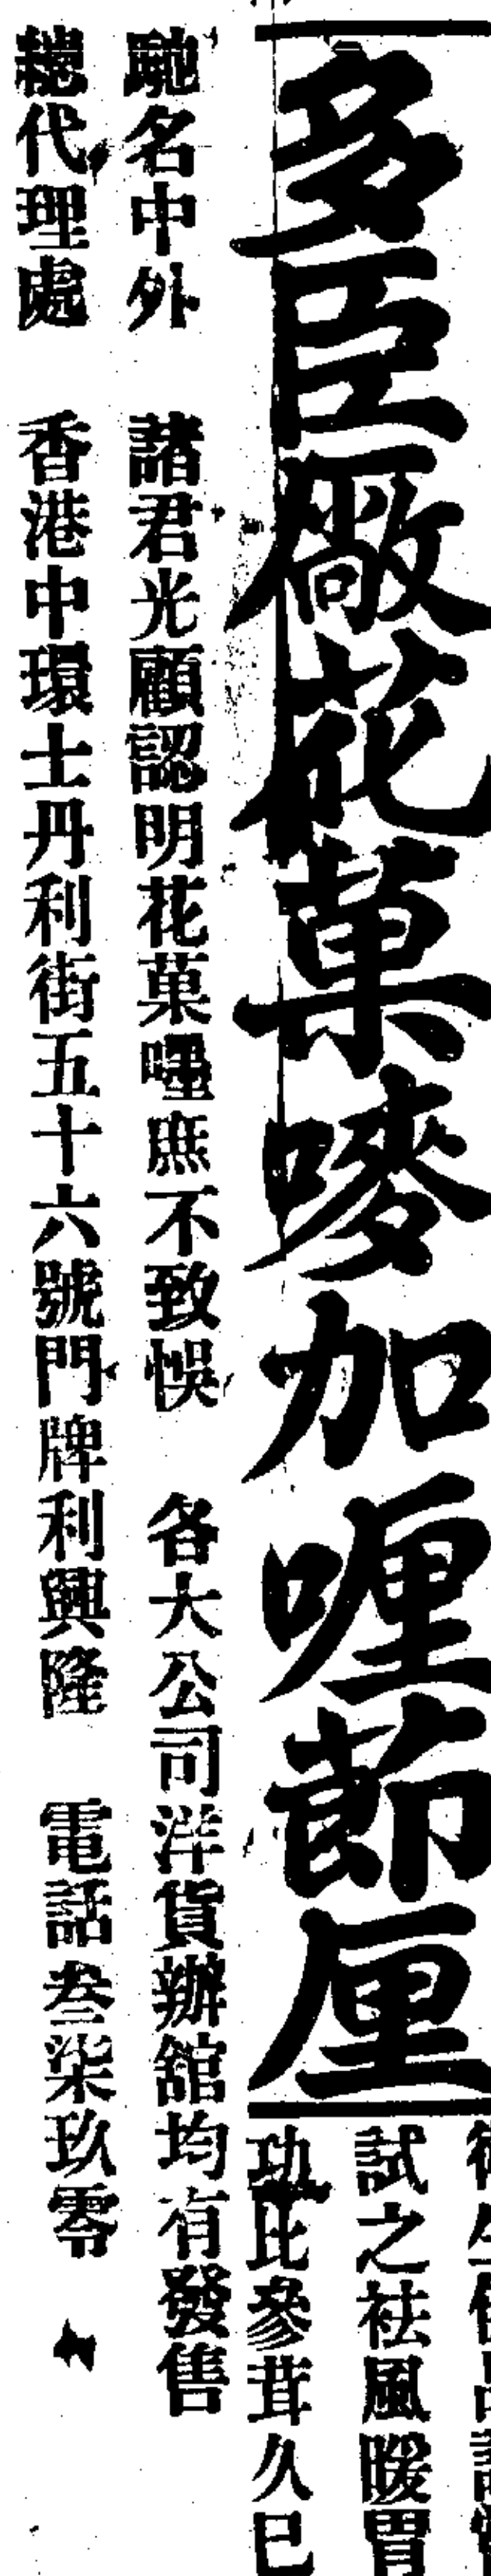 多臣廠花菓嘜加喱節厘
試之祛風暖胃
功比參茸久已
馳名中外 諸君光顧認明花菓嚜庶不致悞 各大公司洋貨辦舘均有發售
總代理處 香港中環士丹利街五十六號門牌利興隆 電話叁柒玖零